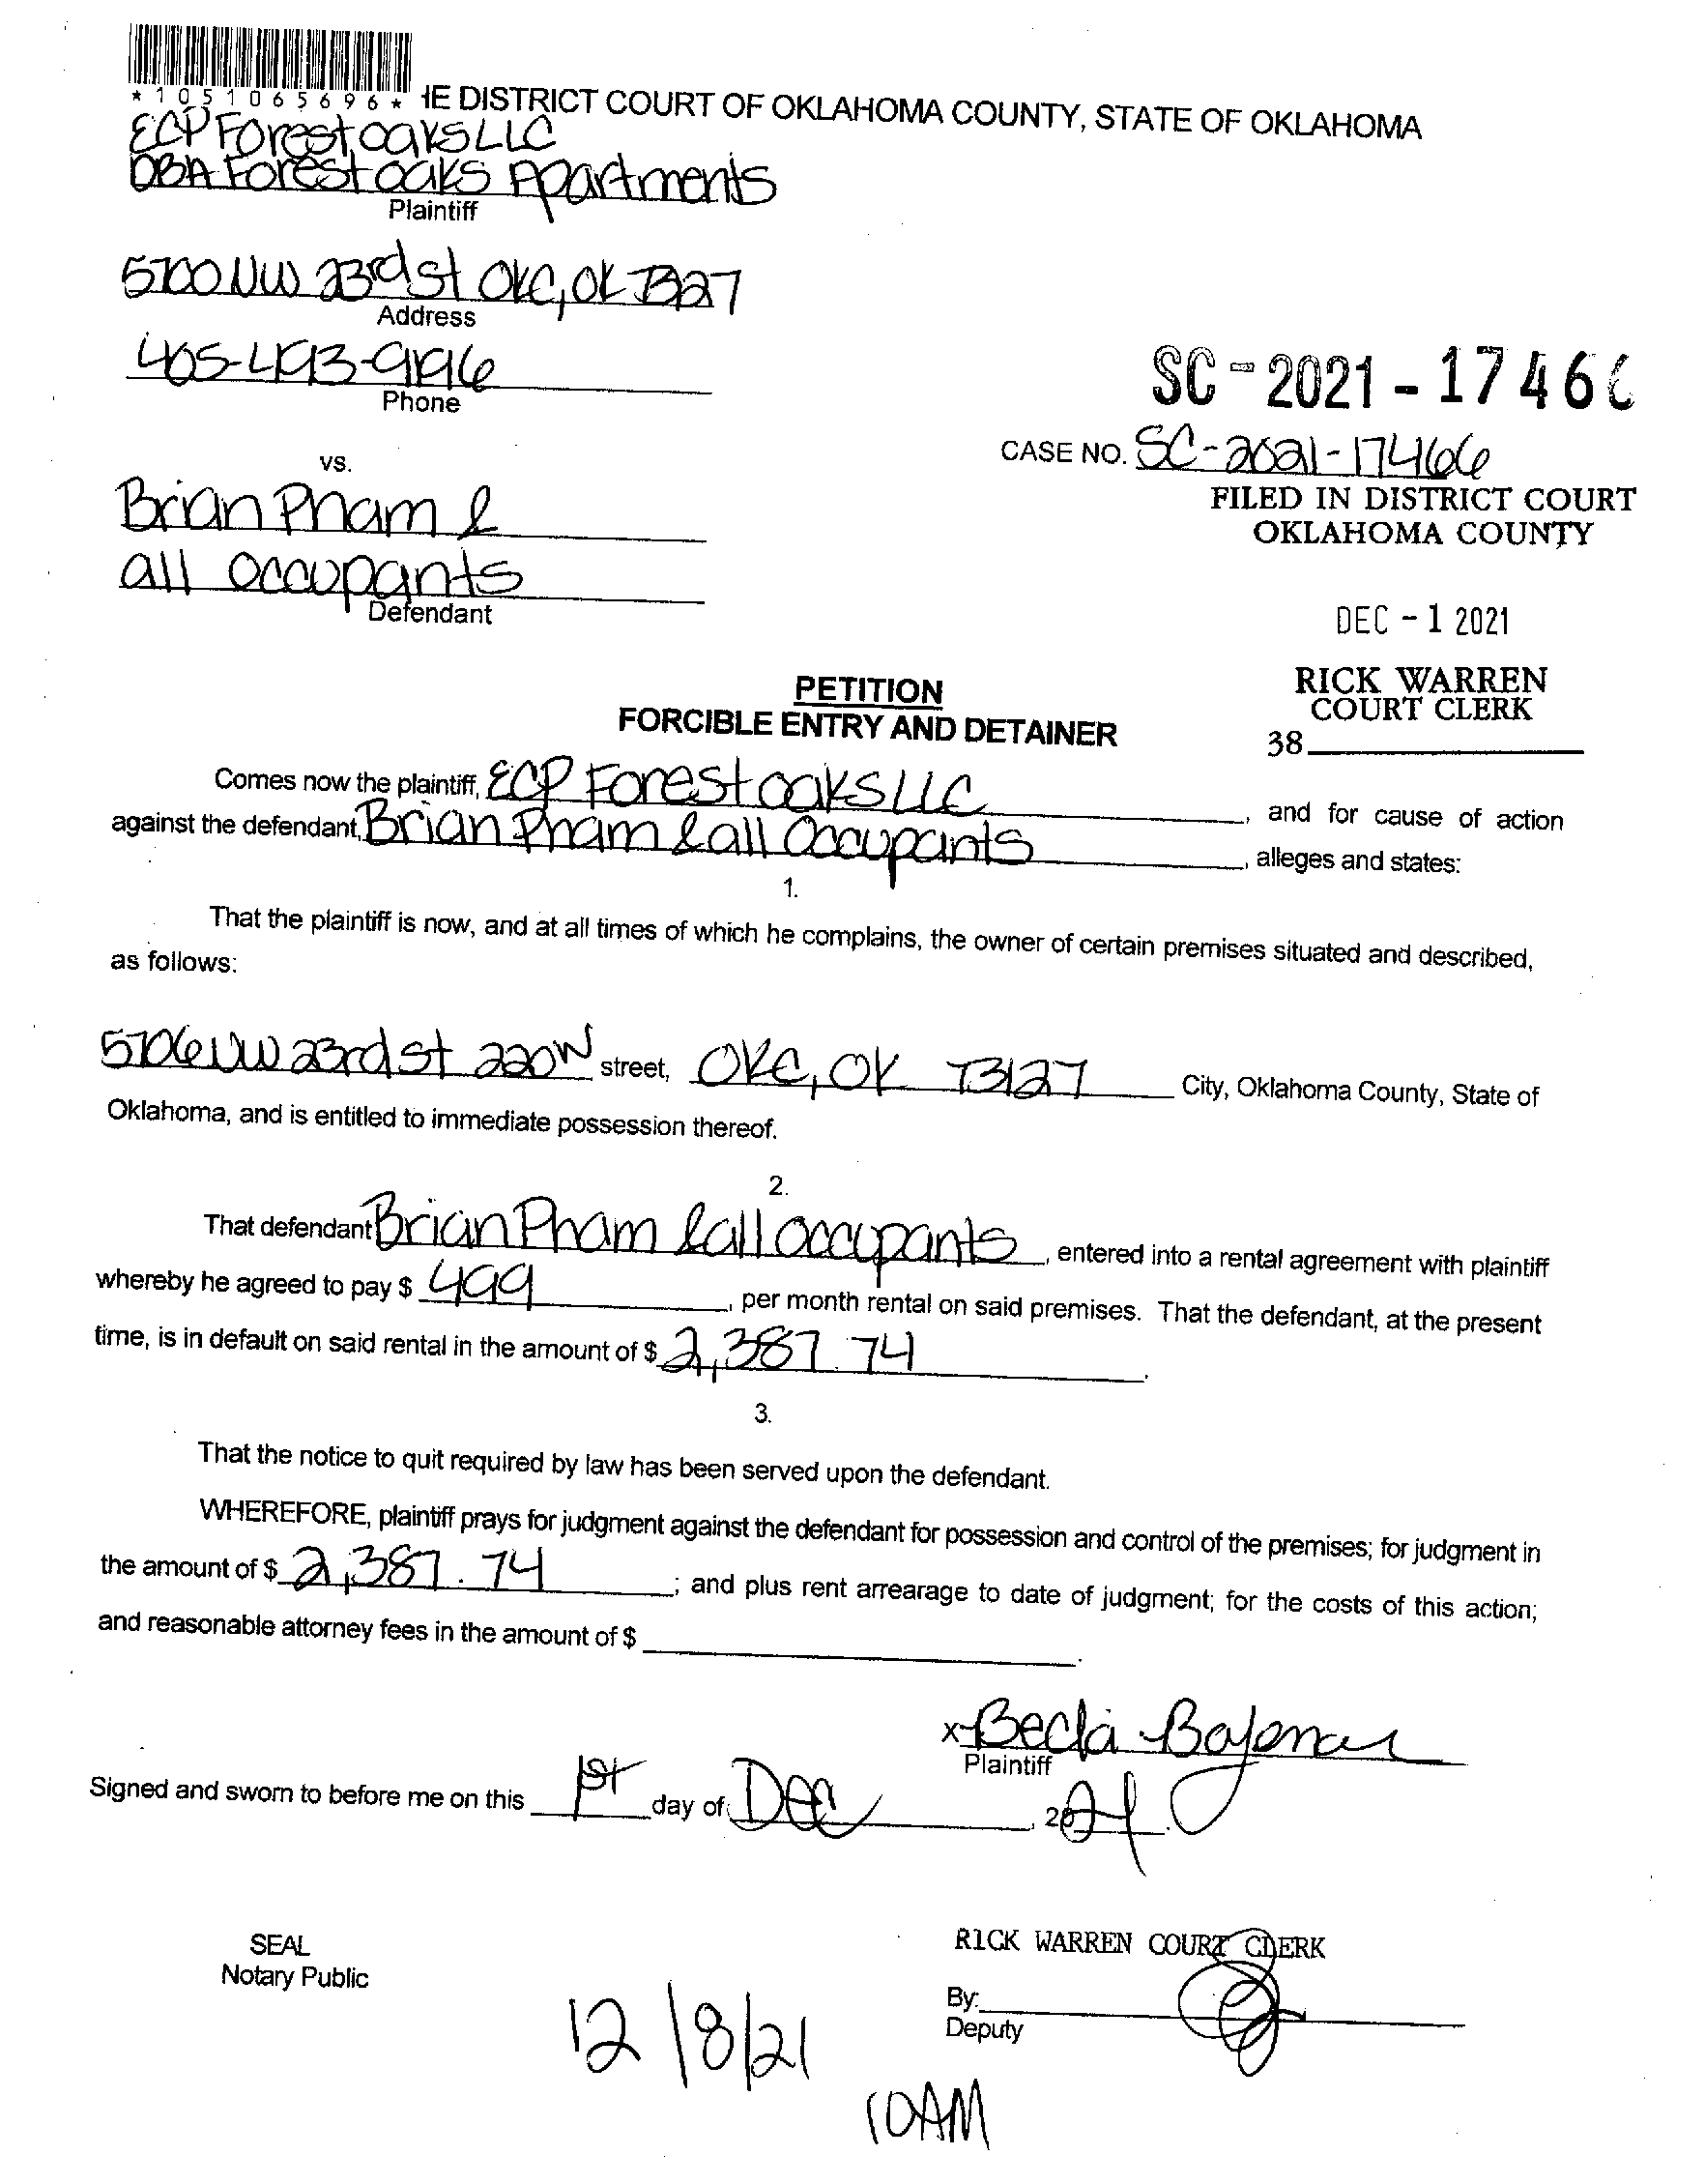 *1051065696* HE DISTRICT COURT OF OKLAHOMA COUNTY, STATE OF OKLAHOMA
ECP Forest oaks LLC
DBA Forest oaks Apartments
Plaintiff
5700 NW 23rd st OKC, OK 73127
Address
405-493-9196
Phone
SC-2021-17466
CASE NO. SC-2021-17466
vs.
FILED IN DISTRICT COURT
OKLAHOMA COUNTY
Brian Pham &
all occupants
Defendant
DEC - 1 2021
RICK WARREN
COURT CLERK
38
PETITION
FORCIBLE ENTRY AND DETAINER
Comes now the plaintiff, ECP Forest oaks LLC, and for cause of action
against the defendant, Brian Pham & all occupants, alleges and states:
1.
That the plaintiff is now, and at all times of which he complains, the owner of certain premises situated and described,
as follows:
5706 NW 23rd st 220W street, OKC, OK 73127 City, Oklahoma County, State of
Oklahoma, and is entitled to immediate possession thereof.
2.
That defendant Brian Pham & all occupants, entered into a rental agreement with plaintiff
whereby he agreed to pay $ 499, per month rental on said premises. That the defendant, at the present
time, is in default on said rental in the amount of $ 2,387.74.
3.
That the notice to quit required by law has been served upon the defendant.
WHEREFORE, plaintiff prays for judgment against the defendant for possession and control of the premises; for judgment in
the amount of $ 2,387.74; and plus rent arrearage to date of judgment; for the costs of this action;
and reasonable attorney fees in the amount of $
x Becla
Plaintiff
Signed and sworn to before me on this 1st day of Dec, 2021.
SEAL
Notary Public
RICK WARREN COURT CLERK
By:
Deputy
12/8/21
10AM